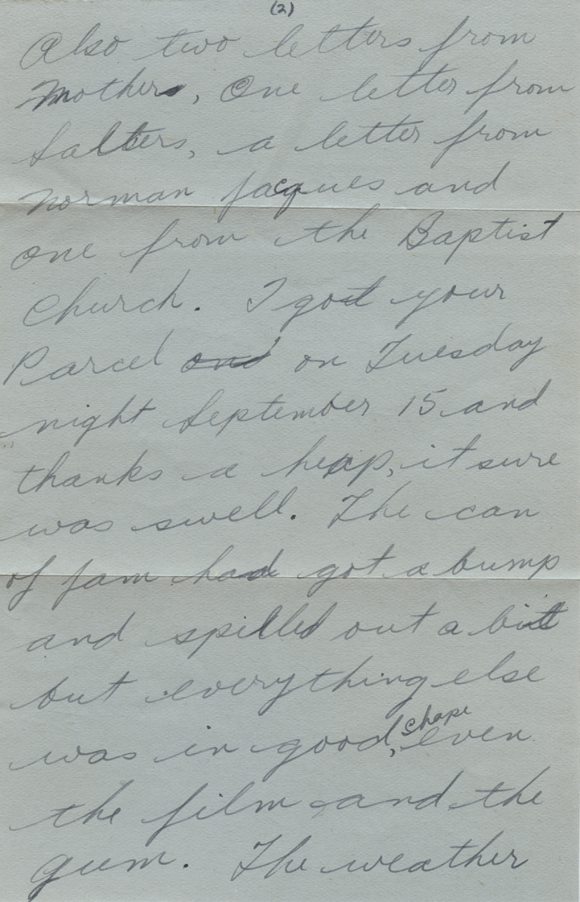 (2)
Also two letters from
Mothers, One letter from
Salters, a letter from
Norman Jacques and
one from the Baptist
Church. I got your
Parcel and on Tuesday
night September 15 and
thanks a heap, it sure
was swell. The can
of jam had got a bump
and spilled out a bit
but everything else
was in good, shape even
the film and the
gum. The weather